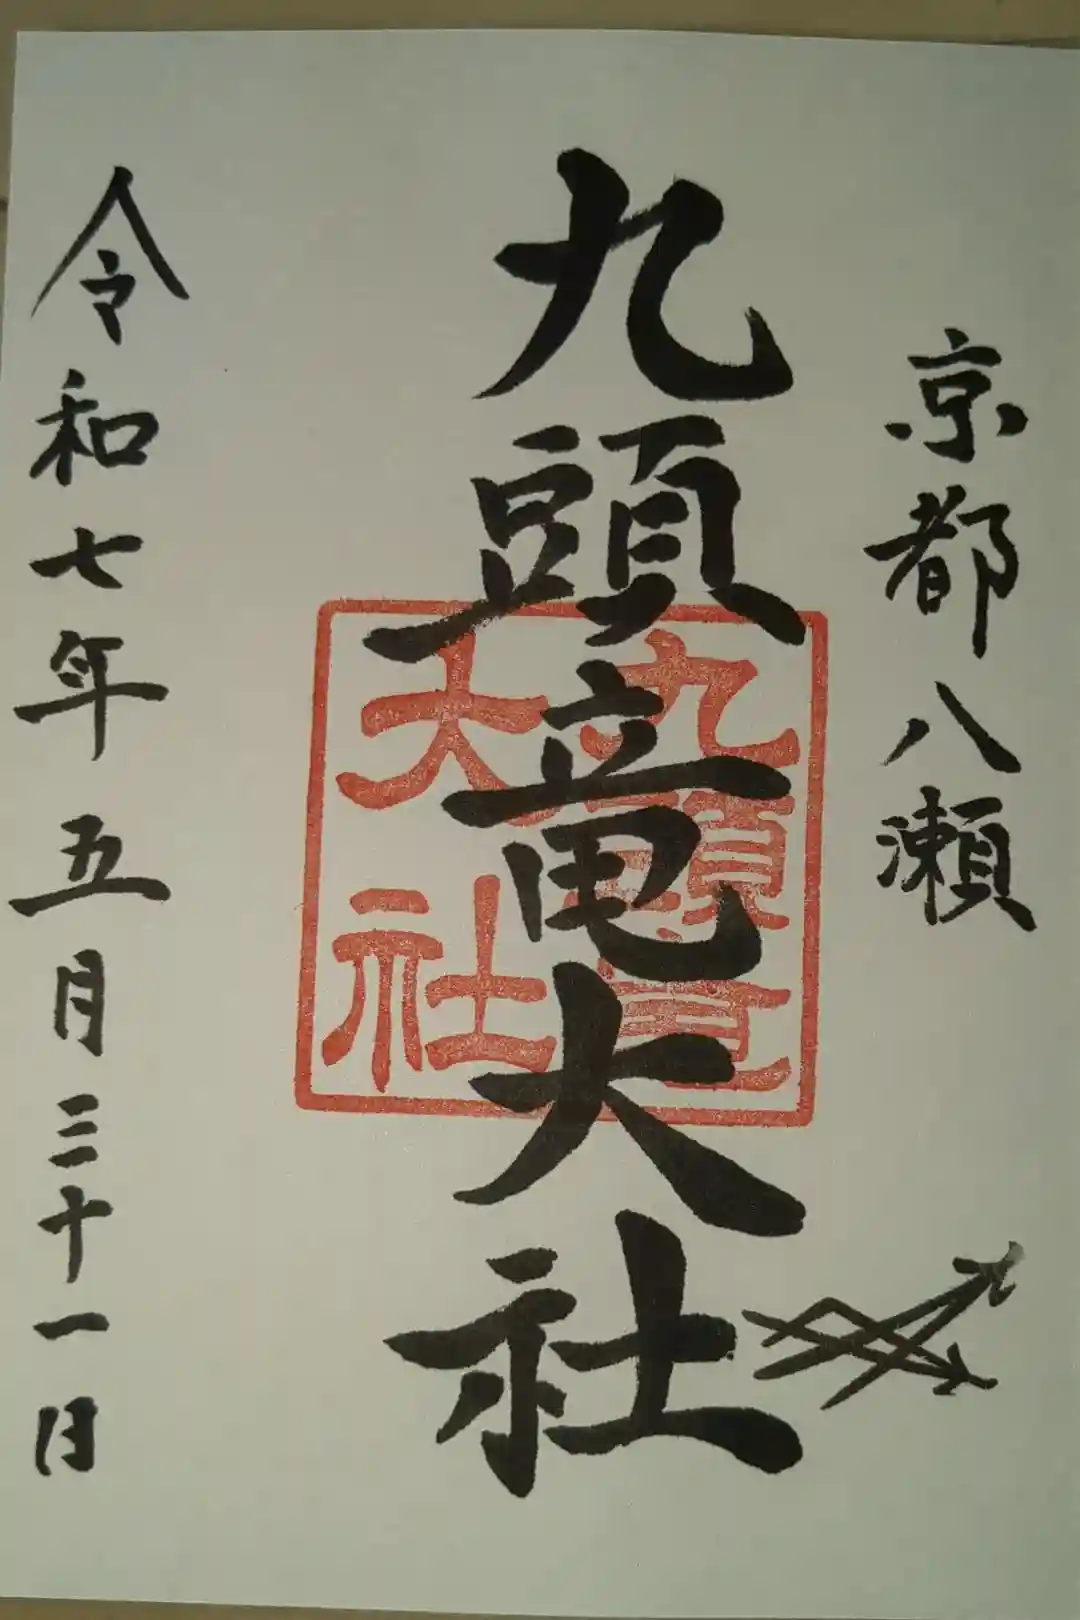 京都八瀬
九頭竜大社
九頭竜
大社
令和七年五月三十一日